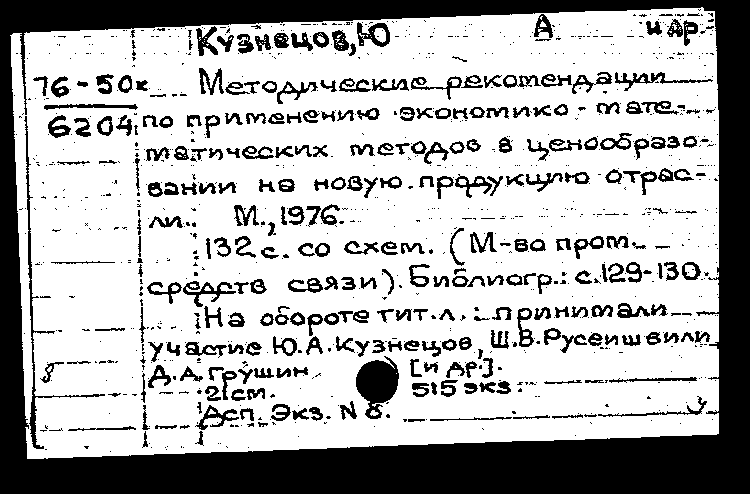 Кузнецов, Ю А и др.
76-50к Методические рекомендации
6204 по применению экономико-мате-
матических методов в ценообразо-
вании на новую продукцию отрас-
ли. М., 1976.
132 с. со схем. (М-во пром.
средств связи). Библиогр.: с.129-130.
На обороте тит.л.: принимали
участие Ю.А.Кузнецов, Ш.В.Русеишвили,
8 Д.А.Грушин [и др.].
21см. 515 экз.
Асп. Экз. N 8. У